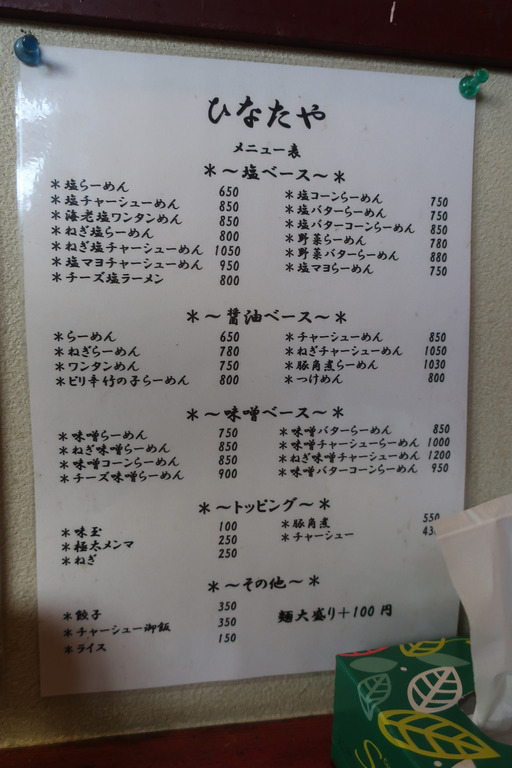 ひなたや
メニュー表
＊～塩ベース～＊
＊塩らーめん 650
＊塩チャーシューめん 850
＊海老塩ワンタンめん 850
＊ねぎ塩らーめん 800
＊ねぎ塩チャーシューめん 1050
＊塩マヨチャーシューめん 950
＊チーズ塩ラーメン 800
＊塩コーンらーめん 750
＊塩バターらーめん 750
＊塩バターコーンらーめん 850
＊野菜らーめん 780
＊野菜バターらーめん 880
＊塩マヨらーめん 750
＊～醤油ベース～＊
＊らーめん 650
＊ねぎらーめん 780
＊ワンタンめん 750
＊ピリ辛竹の子らーめん 800
＊チャーシューめん 850
＊ねぎチャーシューめん 1050
＊豚角煮らーめん 1030
＊つけめん 800
＊～味噌ベース～＊
＊味噌らーめん 750
＊ねぎ味噌らーめん 850
＊味噌コーンらーめん 850
＊チーズ味噌らーめん 900
＊味噌バターらーめん 850
＊味噌チャーシューめん 1000
＊ねぎ味噌チャーシューめん 1200
＊味噌バターコーンらーめん 950
＊～トッピング～＊
＊味玉 100
＊極太メンマ 250
＊ねぎ 250
＊豚角煮 550
＊チャーシュー
＊～その他～＊
＊餃子 350
＊チャーシュー御飯 350
＊ライス 150
麺大盛り＋100円